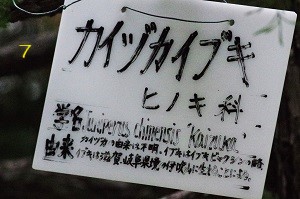 7
カイヅカイブキ
ヒノキ科
学名 Juniperus chinensis 'Kaizuka'
由来 カイヅカの由来は不明、イブキはイブキビャクシンの
イブキは滋賀、岐阜県境の伊吹山に生えることによる。